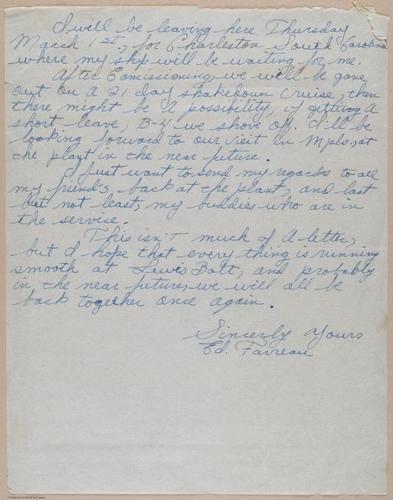 I will be leaving here Thursday
March 1st, for Charleston South Carolina
where my ship will be waiting for me.
After Comissioning we will be gone
out on a 21 day shakedown cruise, then
there might be a possibility, of getting a
short leave, B-4 we shove off. I'll be
looking forward to our visit in Mpls, at
the plant in the near future.
I just want to send my regards to all
my friend's, back at the plant, and last
but not least, my buddies who are in
the service.
This isn't much of a letter,
but I hope that every thing is running
smooth at Lewis Bolt, and probably
in, the near future, we will all be
back together once again.
Sincerly Yours
Ed. Favreau